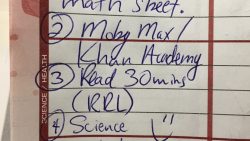 math sheet.
2) Moby Max/
Khan Academy
3) Read 30mins
(RRL)
4) Science
SCIENCE / HEALTH